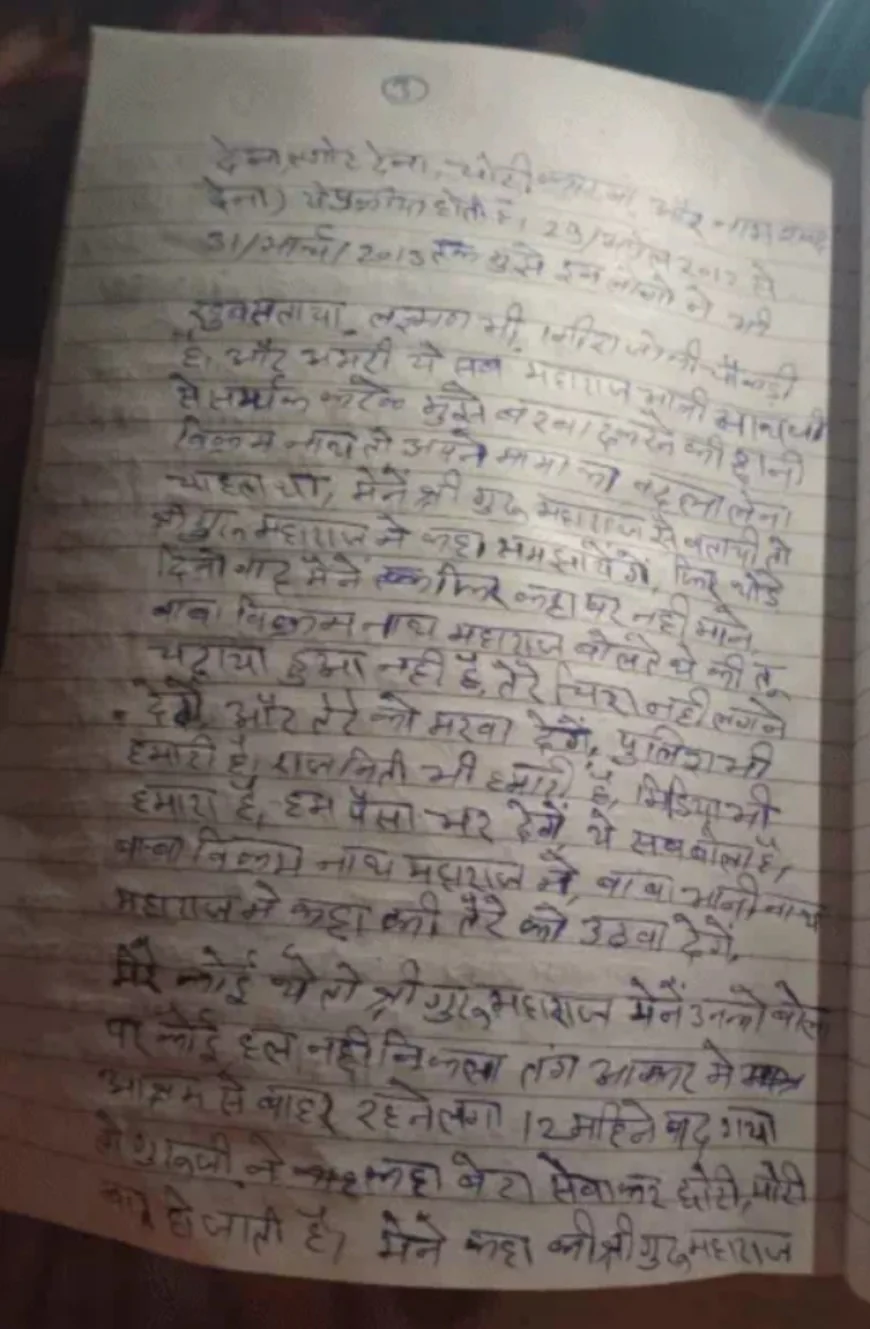 देना, और देना, चोरी करवा और नाम
देना) ये प्रक्रीया होती है। 29/अप्रेल 2012 से
31/मार्च/2013 तक मुझे इन लोगो ने भी
खुब सताया, लक्ष्मण भी,
है। और भमरी ये सब महाराज भानी नाथजी
से सम्पर्क करके मुझे करने की ठानी
विक्रम नाथ तो अपने मामा का बदला लेना
चाहता था, मेनें श्री गुरू महाराज से बतायी तो
श्री गुरू महाराज ने कहा समझायेंगे, फिर थोडे
दिनो बाद मैनें फिर कहा पर नही माने,
बाबा विक्रम नाथ महाराज बोलते थे की तू
पढ़ाया हुआ नही है, तेरे नही लगने
देगें और तेरे को मरवा देगें, पुलिश भी
हमारी है। राजनिती भी हमारी है, मिडिया भी
हमारा है, हम पैसा भर देगें, ये सब बोला है,
बाबा विक्रम नाथ महाराज ने, बाबा भानी नाथ
महाराज ने कहा की तेरे को उठवा देगें,
मेरे कोई थे तो श्री गुरू महाराज मेनें उनको बोला
पर कोई हल नही निकला तंग आकर मे
आश्रम से बाहर रहने लगा 12 महिने बाद गया
तो गुरूजी ने कहा बेटा सेवा कर छोटी, मोटी
बात हो जाती है, मेने कहा की श्री गुरू महाराज